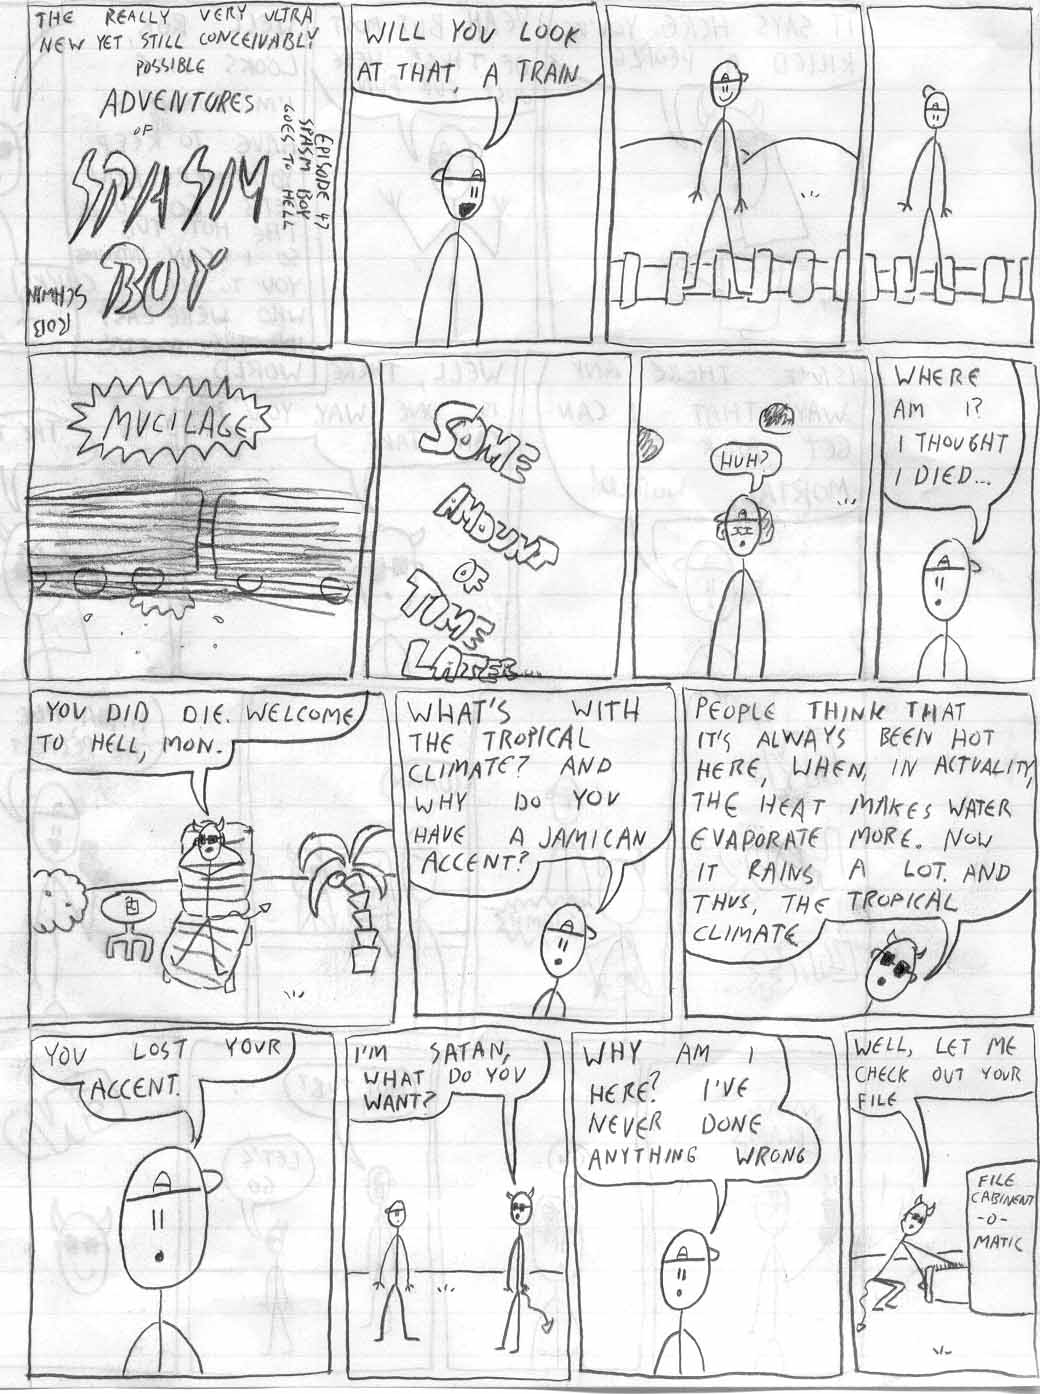 THE REALLY VERY ULTRA
NEW YET STILL CONCEIVABLY
POSSIBLE
ADVENTURES
OF
SPASM
BOY
EPISODE 47
SPASM BOY
GOES TO HELL
ROB
SCHWIN
WILL YOU LOOK
AT THAT, A TRAIN
MUCILAGE
SOME
AMOUNT
OF
TOME
LATER...
HUH?
WHERE
AM I?
I THOUGHT
I DIED...
YOU DID DIE. WELCOME
TO HELL, MON.
WHAT'S WITH
THE TROPICAL
CLIMATE? AND
WHY DO YOU
HAVE A JAMICAN
ACCENT?
PEOPLE THINK THAT
IT'S ALWAYS BEEN HOT
HERE, WHEN, IN ACTUALITY,
THE HEAT MAKES WATER
EVAPORATE MORE. NOW
IT RAINS A LOT. AND
THUS, THE TROPICAL
CLIMATE
YOU LOST YOUR
ACCENT.
I'M SATAN,
WHAT DO YOU
WANT?
WHY AM I
HERE? I'VE
NEVER DONE
ANYTHING WRONG
WELL, LET ME
CHECK OUT YOUR
FILE
FILE
CABINENT
-O-
MATIC